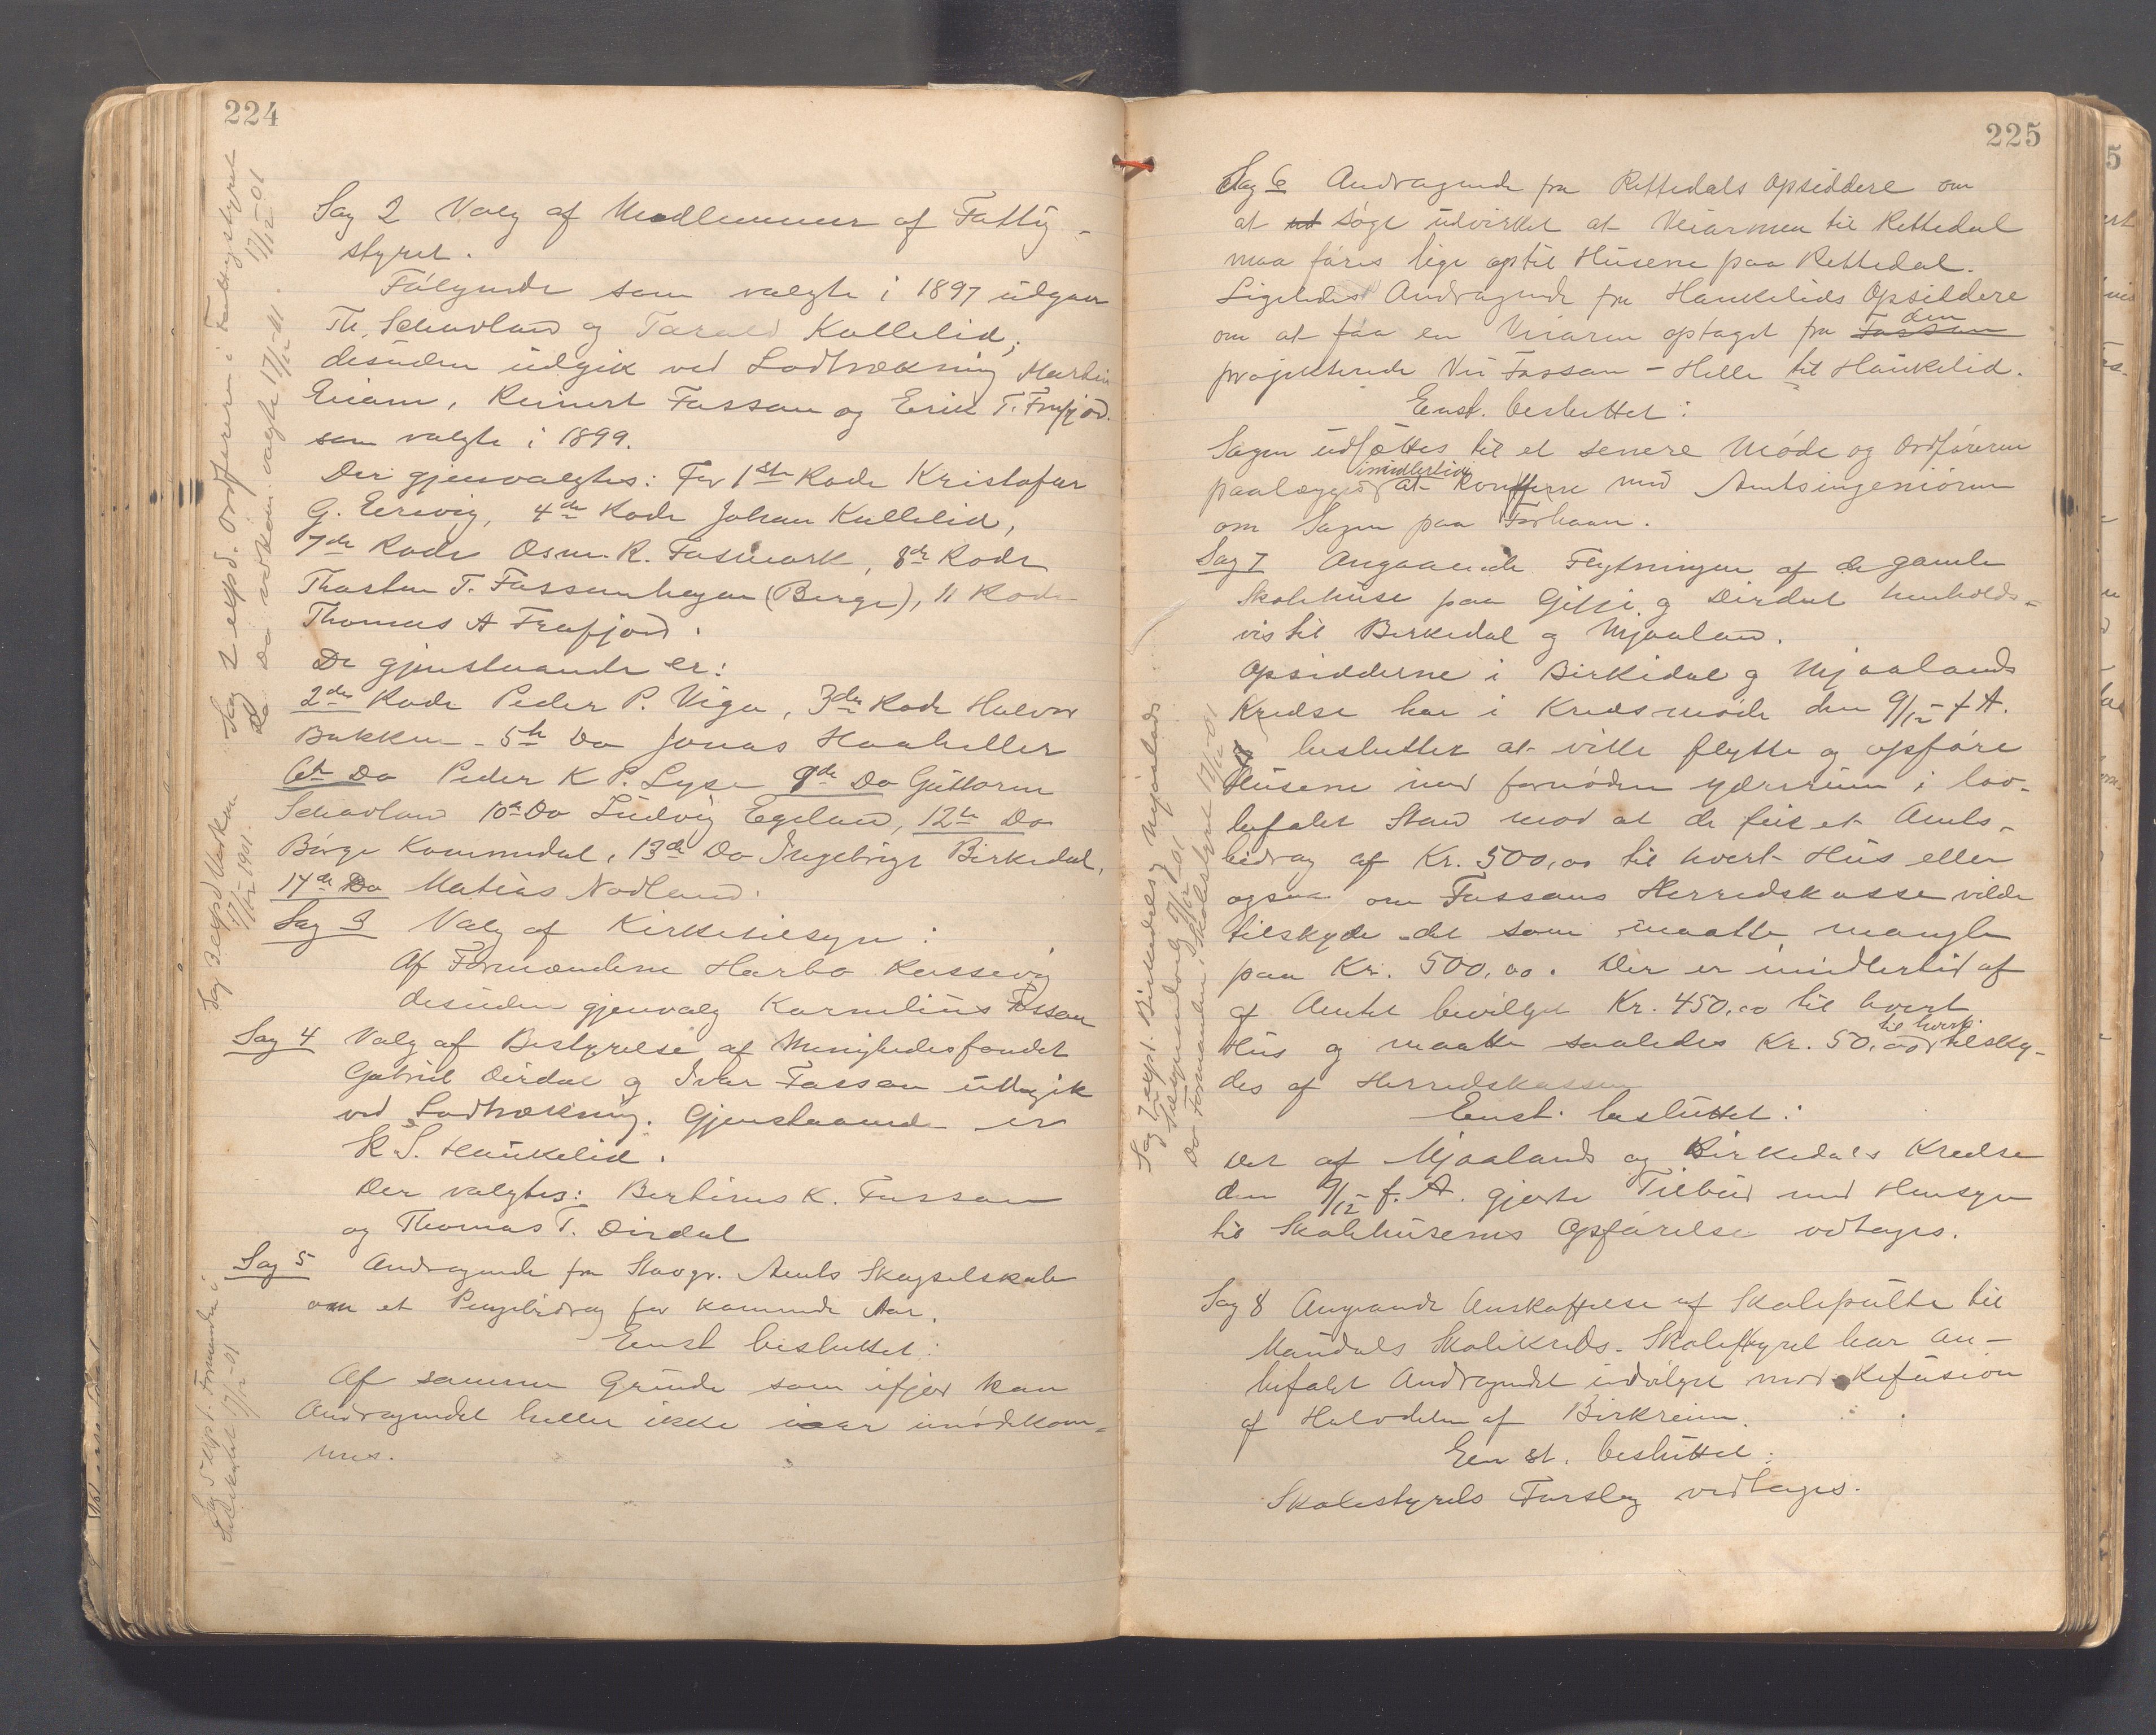 224
Sag 2 Valg af Medlemmer af Fattig-
styret.
Følgende som valgte i 1897 udgaar
Th. Schavland og Tarald Kallelid,
desuden udgik ved Lodtrækning Martin
Eiam, Reinert Fossan og Erik T. Frafjord.
som valgte i 1899.
Der gjenvalgtes: For 1ste Rode Kristofar
G. Eersvig, 4de Rode Johan Kallelid,
7de Rode Osm. R. Fosmark, 8de Rode
Thosten T. Fossanhagen (Berge), 11 Rode
Thomas A Frafjord.
De gjenstaaende er:
2den Rode Peder P. Viga, 3die Rode Halvor
Bakken - 5te Do Jonas Haaheller
6te Do Peder K P. Lyse 9de Do Guttorm
Schavland 10de Do Ludvig Egeland, 12te Do
Børge Kommedal, 13de Do Ingebrigt Birkedal,
14de Do Matias Nodland.
Sag 3 Valg af Kirketilsyn:
Af Formændene Harbo Ressevig
desuden gjenvalg Kornelius Fossan
Sag 4 Valg af Bestyrelse af Menighedsfondet
Gabriel Dirdal og Ivar Fossan udgik
ved Lodtrækning. Gjenstaaende er
K S. Haukelid.
Der valgtes: Bertinus K. Fossan
og Thomas T. Dirdal
Sag 5 Andragende fra Stavgr. Amts Skogselskab
om et Pengebidrag for kommende Aar.
Enst besluttet:
Af samme Grunde som ifjor kan
Andragendet heller ikke iaar imødekom-
mes.
Sag 2 expd. Ordføreren i Fattigstyret 17/12-01
Do Do vedkom. valgte 17/12-01.
Sag 3 expd Vedkom
17/12 1901.
Sag 5 expt. Formanden i
Selskabet 17/12-01
225
Sag 6 Andragende fra Rettedals Opsiddere om
at ud søge udvirket at Veiarmen til Rettedal
maa føres lige op til Husene paa Rettedal.
Ligeledes Andragende fra Haukelids Opsiddere
om at faa en Veiarm optaget fra Fossan den
projekterede Vei Fossan - Helle til Haukelid.
Enst. besluttet:
Sagen udsættes til et senere Møde og Ordføreren
paalægges imidlertid at konferere med Amtsingeniøren
om Sagen paa Forhaan.
Sag 7 Angaaende Flytningen af de gamle
Skolehuse paa Gilje og Dirdal henholds-
vis til Birkedal og Mjaaland.
Opsidderne i Birkedal og Mjaalands
Kredse har i Kredsmøde den 9/12 f A.
besluttet at ville flytte og opføre
Husene med fornøden yderrum i lov-
befalet Stand mod at de feik et Amts-
bidrag af Kr. 500,00 til hvert Hus eller
ogsaa om Fossans Herredskasse vilde
tilskyde det som maatte mangle
paa Kr. 500,00. Der er imidlertid af
af Amtet bevilget Kr. 450,00 til hvert
Hus og maatte saaledes Kr. 50,00 til hvert tilsky-
des af Herredskassen
Enst. besluttet:
Det af Mjaalands og Birkedals Kredse
den 9/12 f. A. gjorte Tilbud med Hensyn
til Skolehusenes Opførelse vedtages.
Sag 8 Angaande Anskaffelse af Skolepulte til
Maudals Skolekreds. Skolestyret har an-
befalet Andragendet indvilget mod Refusion
af Halvdelen af Birkreim.
Een st. besluttet:
Skolestyrets Forslag vedtages.
Sag 7 expt. Birkedals og Mjaalands
Tilsynsudvalg 17/12-01
Do Formanden i Skolestyret 17/12-01